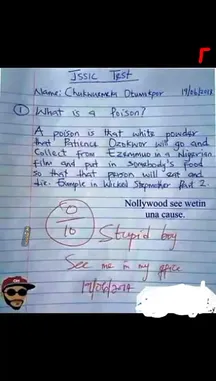 JSSIC Test
Name: Chukwuemeka Obumkpor 19/06/2014
① What is a Poison?
A poison is that white powder
that Patience Ozokwor will go and
Collect from Ezemmuo in a Nigerian
film and put in somebody's food
so that that person will eat and
die. Example in Wicked Stepmother Part 2.
Nollywood see wetin
una cause.
0
10
Stupid boy
See me in my office
19/06/2014